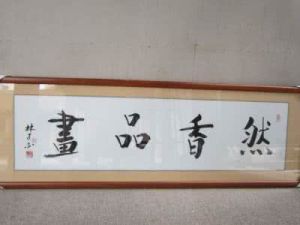 然香品畫